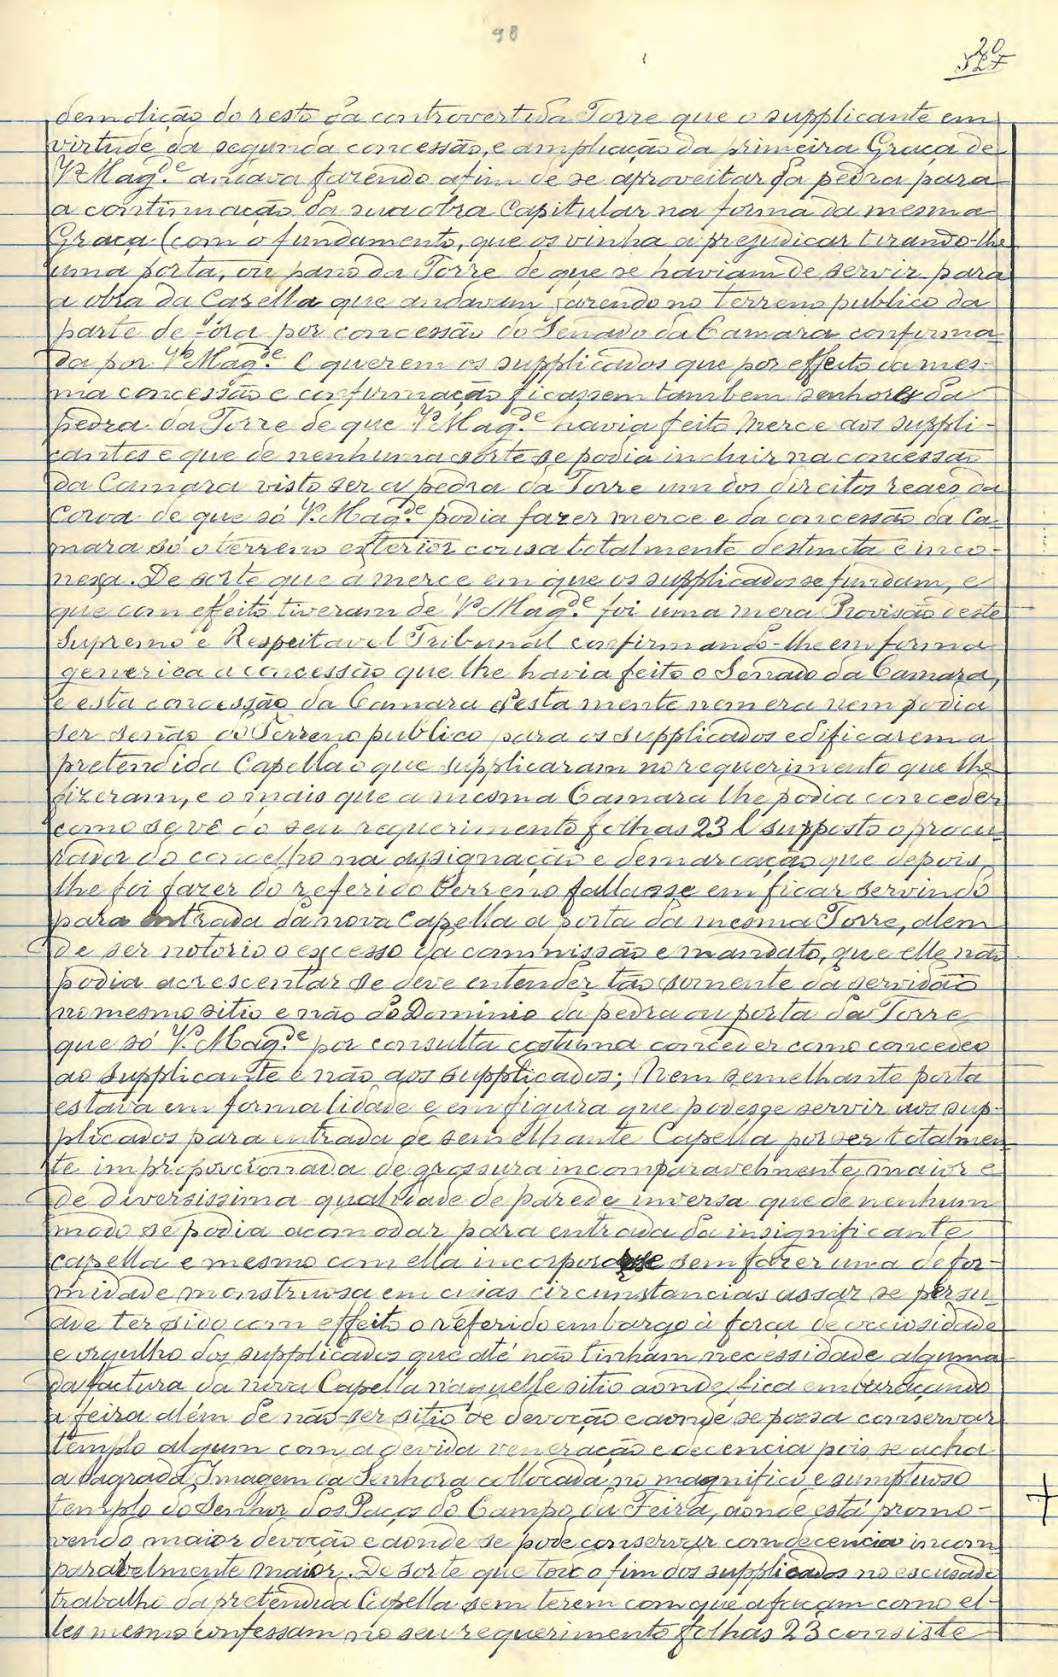 98
20
527
demolição do resto da controvertida Torre que o supplicante em
virtude da segunda concessão, e ampliação da primeira Graça de
V. Mag.de andava fazendo afim de se aproveitar da pedra para
a continuação da sua obra Capitular na forma da mesma
Graça (com o fundamento, que os vinha a prejudicar tirando-lhe
uma porta, ou pano da Torre de que se haviam de servir para
a obra da Capella que andavam fazendo no terreno publico da
parte de fóra por concessão do Senado da Camara confirma-
da por V. Mag.de E querem os supplicados que por effeito da mes-
ma concessão e confirmação ficassem tambem senhores da
pedra da Torre de que V. Mag.de havia feito Merce aos suppli-
cantes e que de nenhuma sorte se podia incluir na concessão
da Camara visto ser a pedra da Torre um dos direitos reaes da
Coroa de que só V. Mag.de podia fazer merce e da concessão da Ca-
mara só o terreno exterior cousa totalmente destincta e inco-
nexa. De sorte que a merce em que os supplicados se fundam, e
que com effeito tiveram de V. Mag.de foi uma mera Provisão deste
Supremo e Respeitavel Tribunal confirmando-lhe em forma
generica a concessão que lhe havia feito o Senado da Camara,
e esta concessão da Camara destamente nem era nem podia
ser senão do Terreno publico para os supplicados edificarem a
pretendida Capella o que supplicaram no requerimento que lhe
fizeram, e o mais que a mesma Camara lhe podia conceder
como se vê do seu requerimento folhas 23 E supposto o procu-
rador do concelho na assignação e demarcação que depois
lhe foi fazer do referido terreno fallasse em ficar servindo
para entrada da nova Capella a porta da mesma Torre, alem
de ser notorio o excesso da commissão e mandato, que elle não
podia acrescentar se deve entender tão somente da servidão
no mesmo sitio e não do Dominio da pedra ou porta da Torre
que só V. Mag.de por consulta costuma conceder como concedeo
ao Supplicante e não aos supplicados; Nem semelhante porta
estava em formalidade e em figura que podesse servir aos sup-
plicados para entrada de semelhante Capella por ser totalmen-
te improporcionada de grossura incomparavelmente maior e
de diversissima qualidade de parede inversa que de nenhum
modo se podia acomodar para entrada da insignificante
capella e mesmo com ella incorporasse sem fazer uma defor-
midade monstruosa em cujas circumstancias assaz se persu-
ade ter sido com effeito o referido embargo à força de ociosidade
e orgulho dos supplicados que até não tinham necessidade alguma
da factura da nova Capella n'aquelle sitio aonde fica embaraçando
a feira além de não ser sitio de devoção e aonde se possa conservar
templo algum com a devida veneração e decencia pois se acha
a Sagrada Imagem da Senhora collocada no magnifico e sumptuoso
templo do Senhor dos Paços do Campo da Feira, aonde está promo-
vendo maior devoção e aonde se pode conservar com decencia incom
paravelmente maior. De sorte que todo o fim dos supplicados no escusado
trabalho da pretendida Capella sem terem com que a façam como el-
les mesmo confessam no seu requerimento folhas 23 consiste